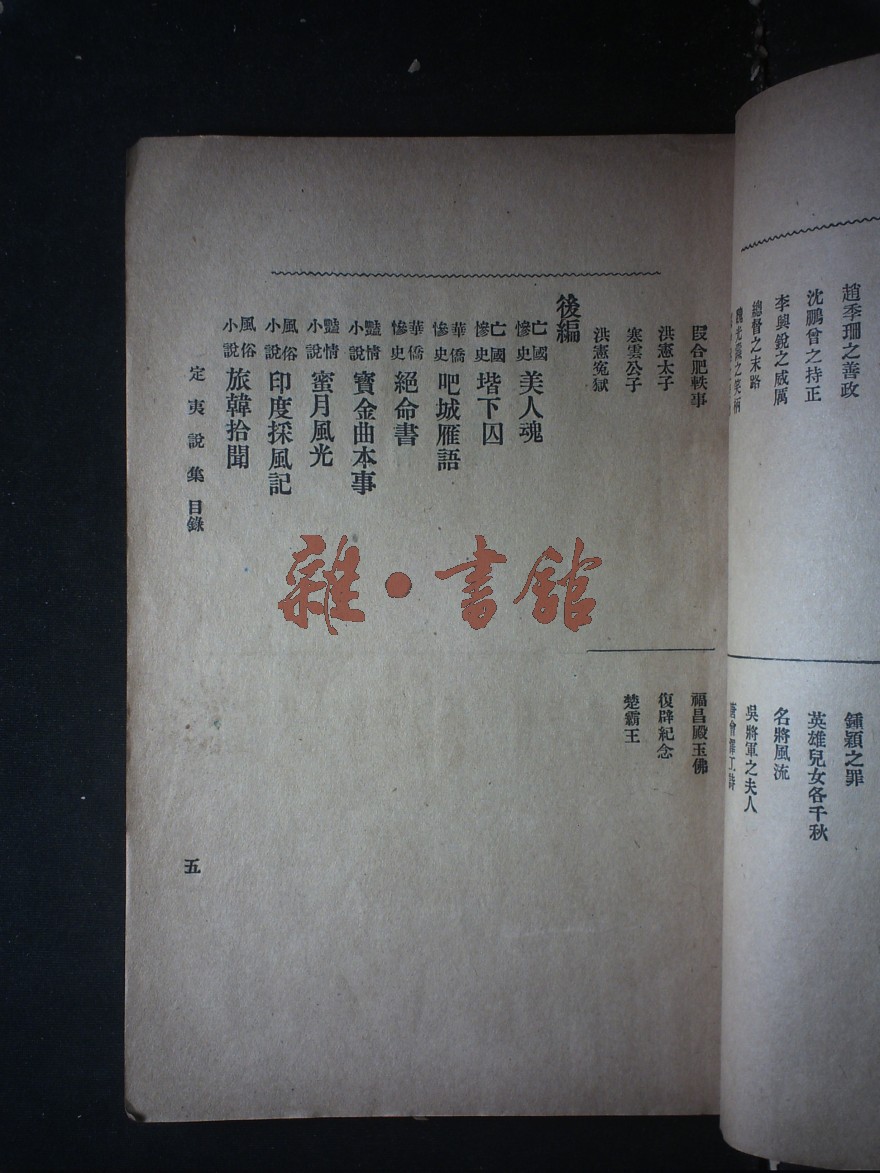 趙季珊之善政
沈鵬曾之持正
李興銳之威厲
總督之末路
鍾穎之罪
英雄兒女各千秋
名將風流
吳將軍之夫人
段合肥軼事
洪憲太子
寒雲公子
洪憲冤獄
福昌殿玉佛
復辟紀念
楚霸王
後編
亡國慘史 美人魂
亡國慘史 堦下囚
華僑慘史 吧城雁語
華僑慘史 絕命書
豔情小說 寶金曲本事
豔情小說 蜜月風光
風俗小說 印度採風記
風俗小說 旅韓拾聞
定夷說集 目錄
五
雜·書館